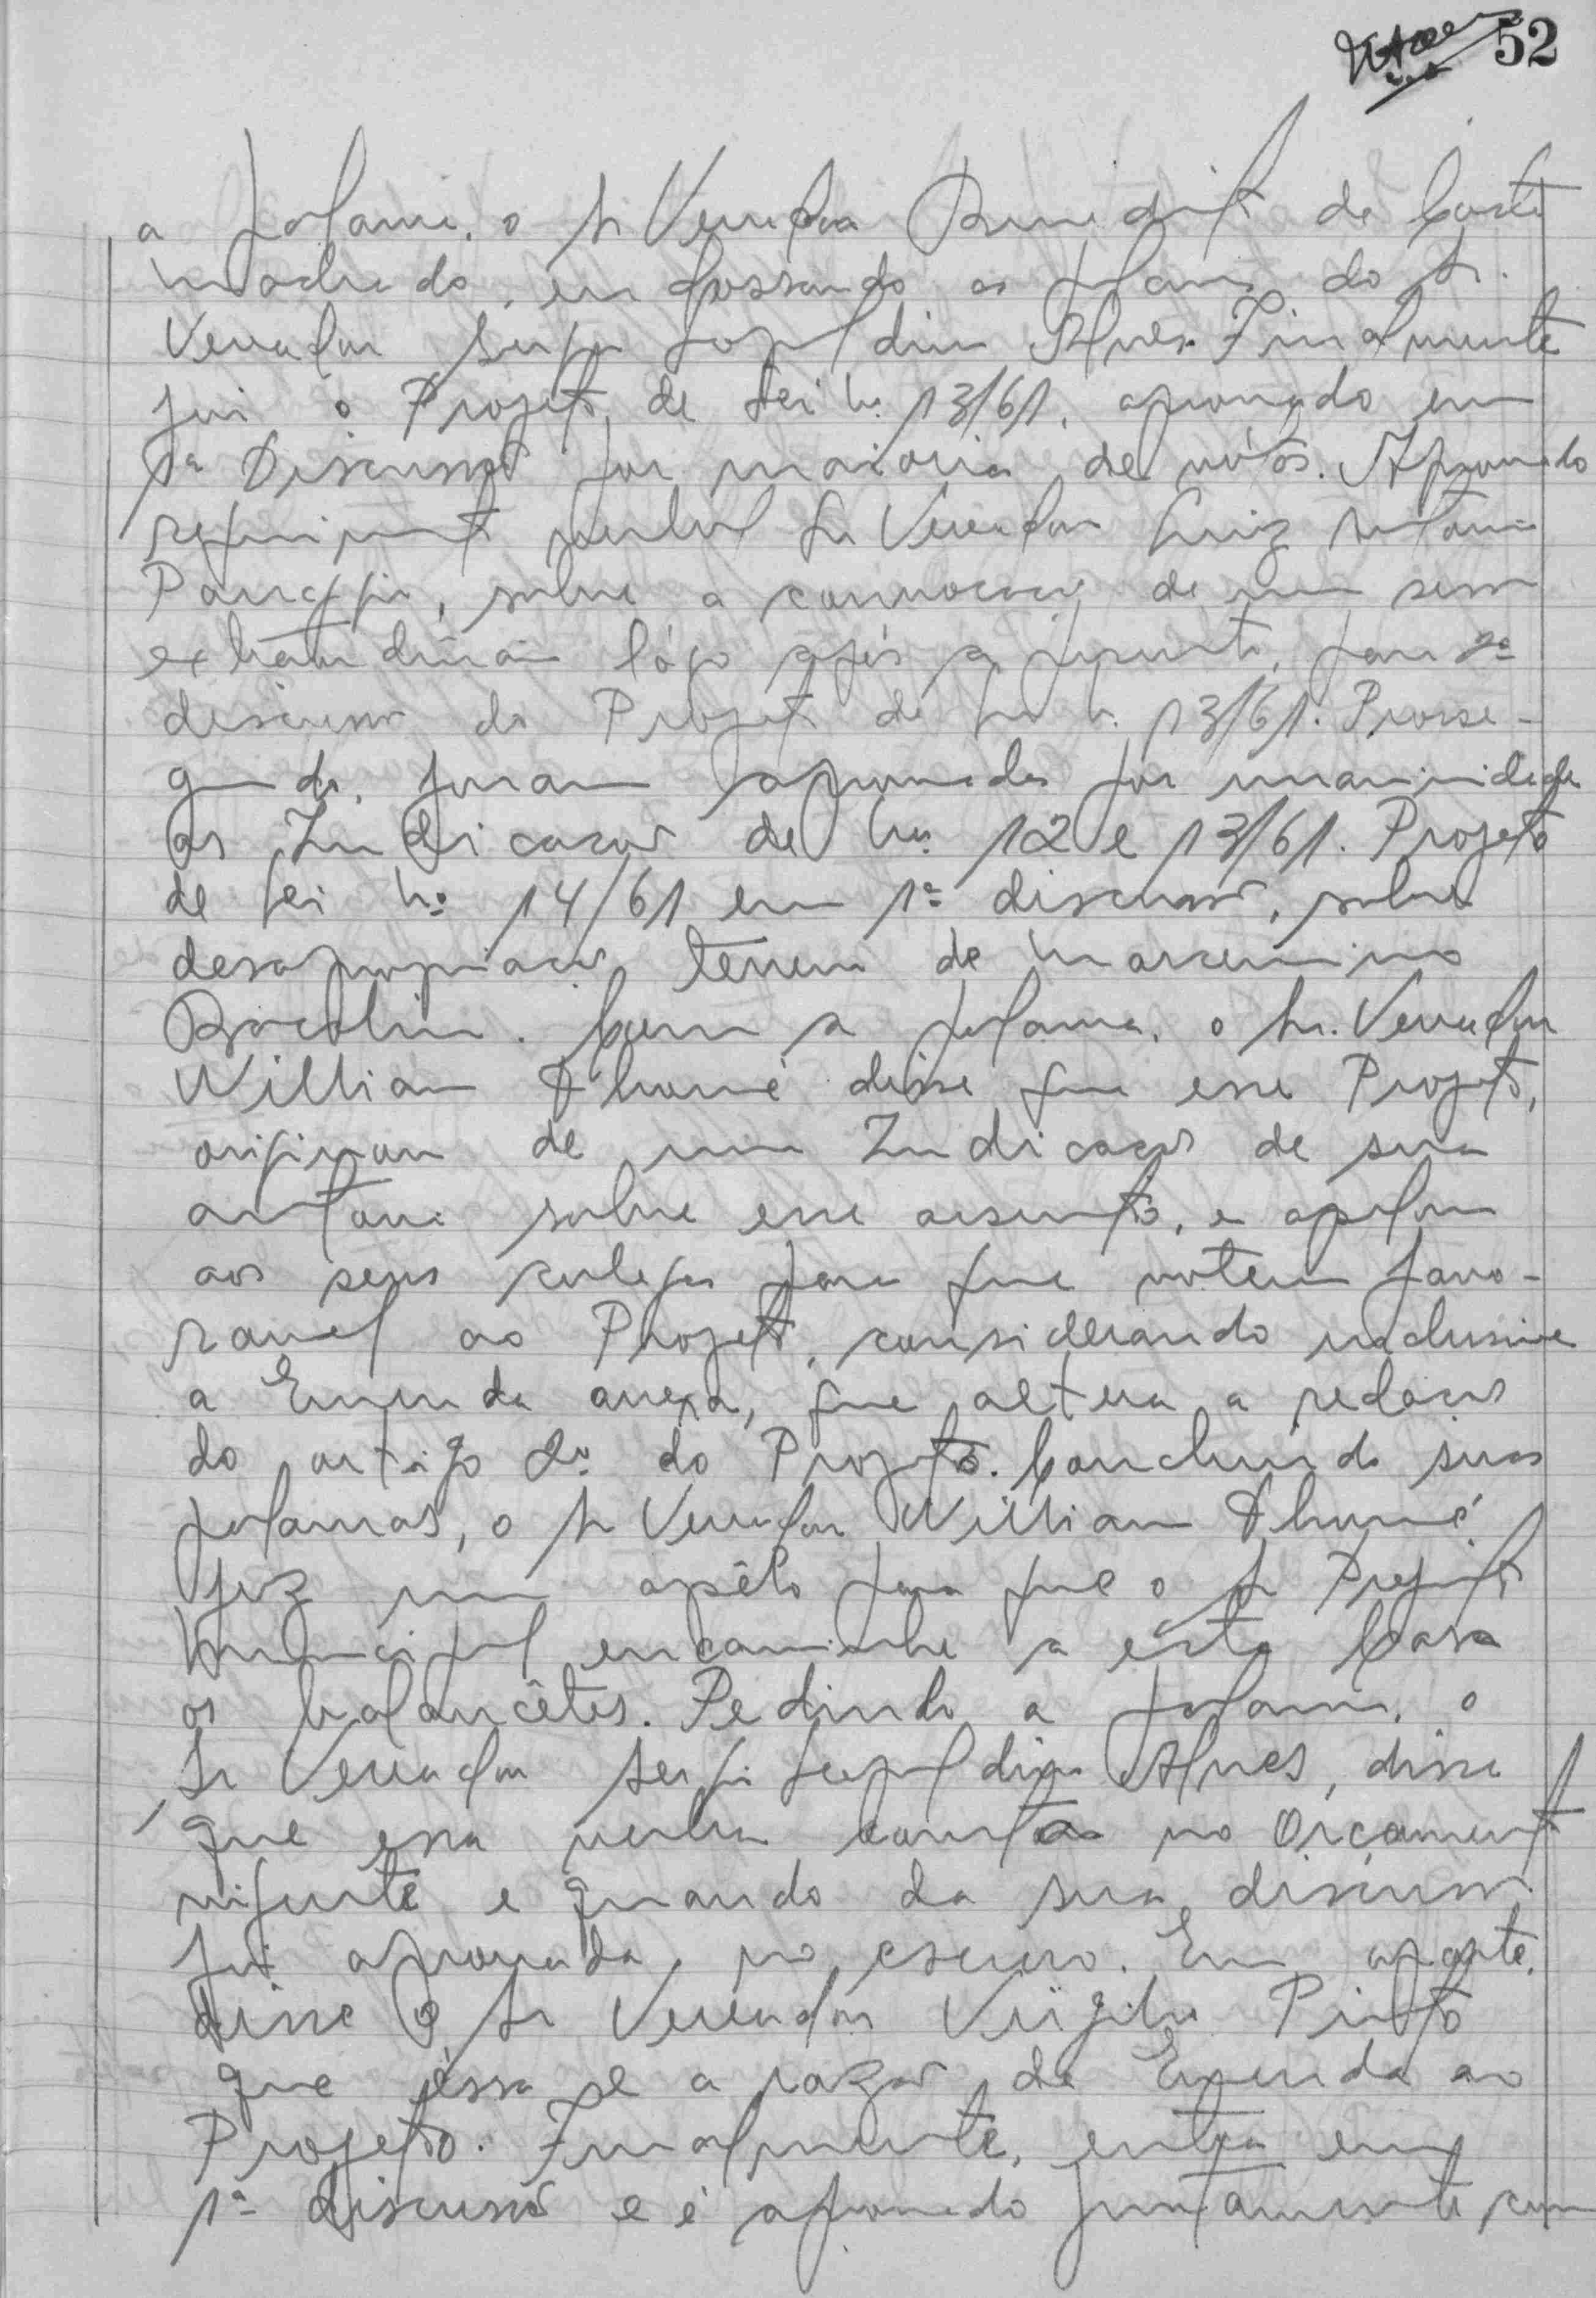 52
a palavra, o Sr Vereador Benedito de Costa
Machado, endossando as palavras do Sr.
Vereador Sergio Leopoldino Alves. Finalmente
foi o Projeto de Lei nº 13/61, aprovado em
1ª Discussão por maioria de vótos. Aprovado
requerimento verbal Sr Vereador Luiz Antonio
sobre a convocação de uma sessão
extraordinária lógo após a presente, para 2ª
discussão do Projeto de Lei n. 13/61. Prosse-
guindo, foram aprovadas por unanimidade
as Indicações de nº 12 e 13/61. Projeto
de Lei nº 14/61 em 1ª discussão, sobre
desapropriação terreno de Marcemino
Bocolin. Com a palavra, o Sr. Vereador
Willian Thomé disse que esse Projeto,
originou de uma Indicação de sua
autoria sobre esse assunto, e apelou
aos seus colegas para que votem favo-
ravel ao Projeto, considerando inclusive
a Emenda anexa, que altera a redação
do artigo 2º do Projeto. Concluindo suas
palavras, o Sr Vereador Willian Thomé
fez um apêlo para que o Sr Prefeito
Municipal encaminhe a esta Casa
os balancêtes. Pedindo a palavra, o
Sr Vereador Sergio Leopoldino Alves, disse
que essa verba consta no Orçamento
vigente e quando da sua discussão
foi aprovada no escuro. Em aparte,
disse o Sr Vereador Virgilio Pinto
que éssa é a razão da Emenda ao
Projeto. Finalmente, entra em
1ª discussão e é aprovado juntamente com